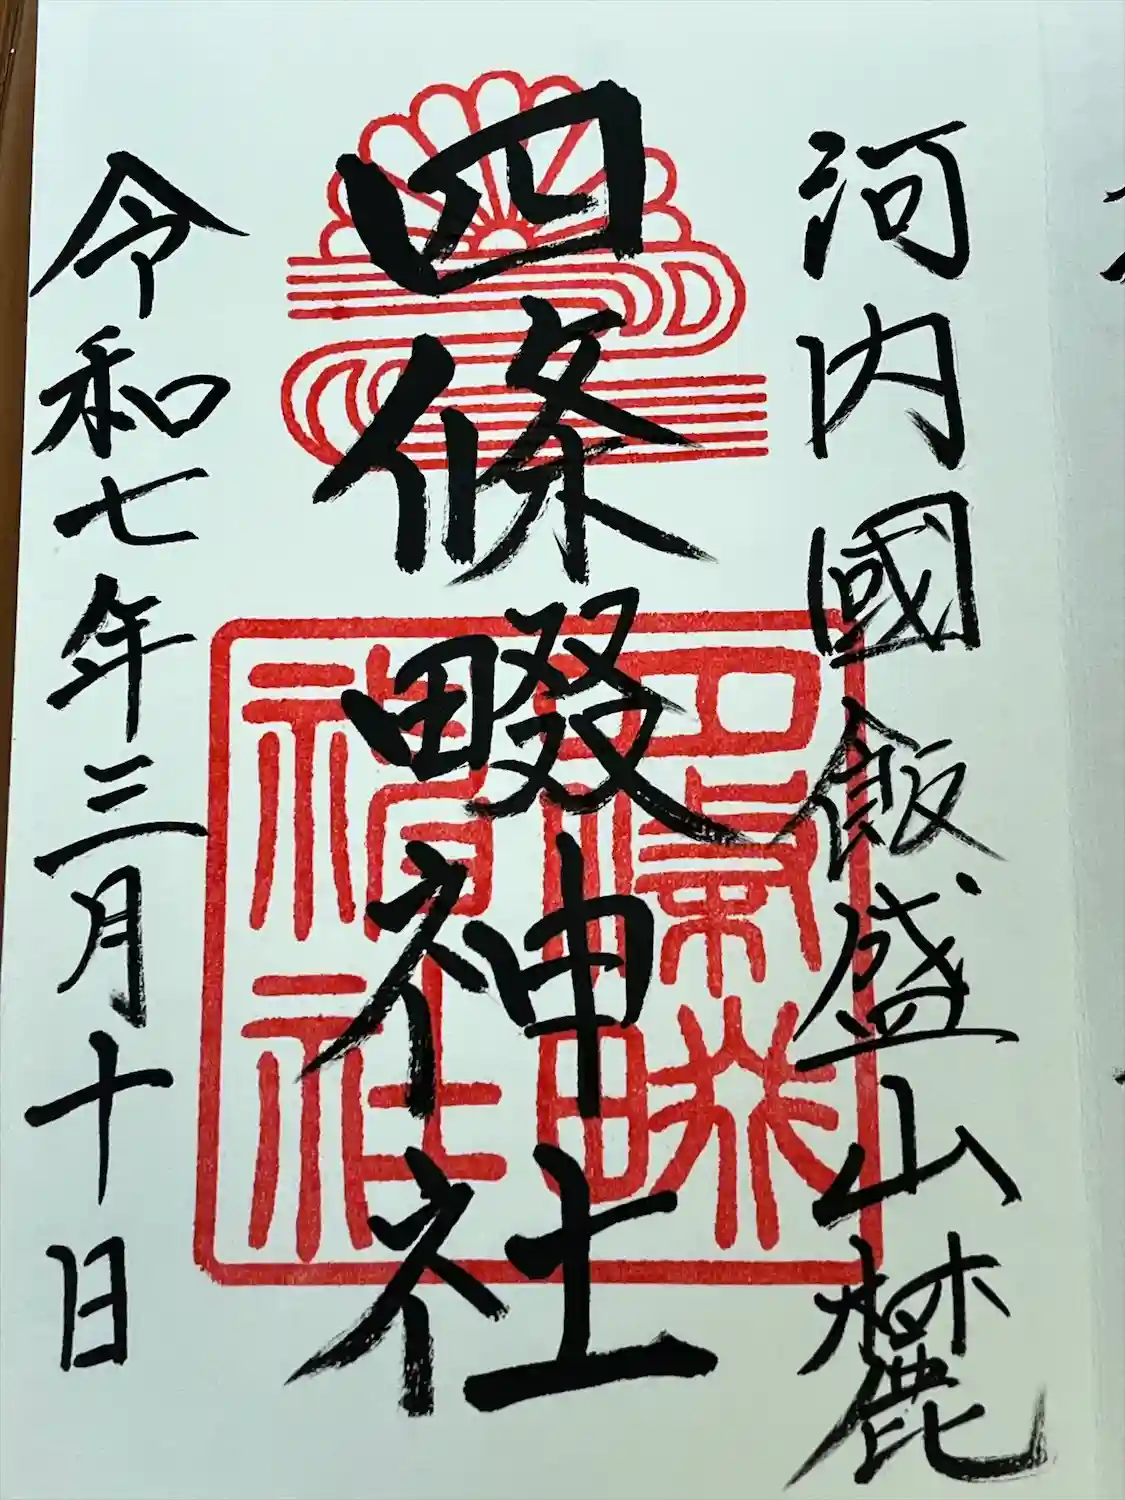 河内國飯盛山麓
四條畷神社
四條畷神社
令和七年三月十日